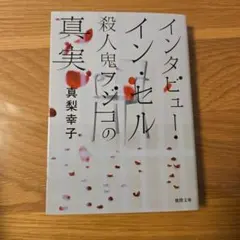 インタビュー・
イン・セル
殺人鬼フジコの
真実
真梨幸子
徳間文庫